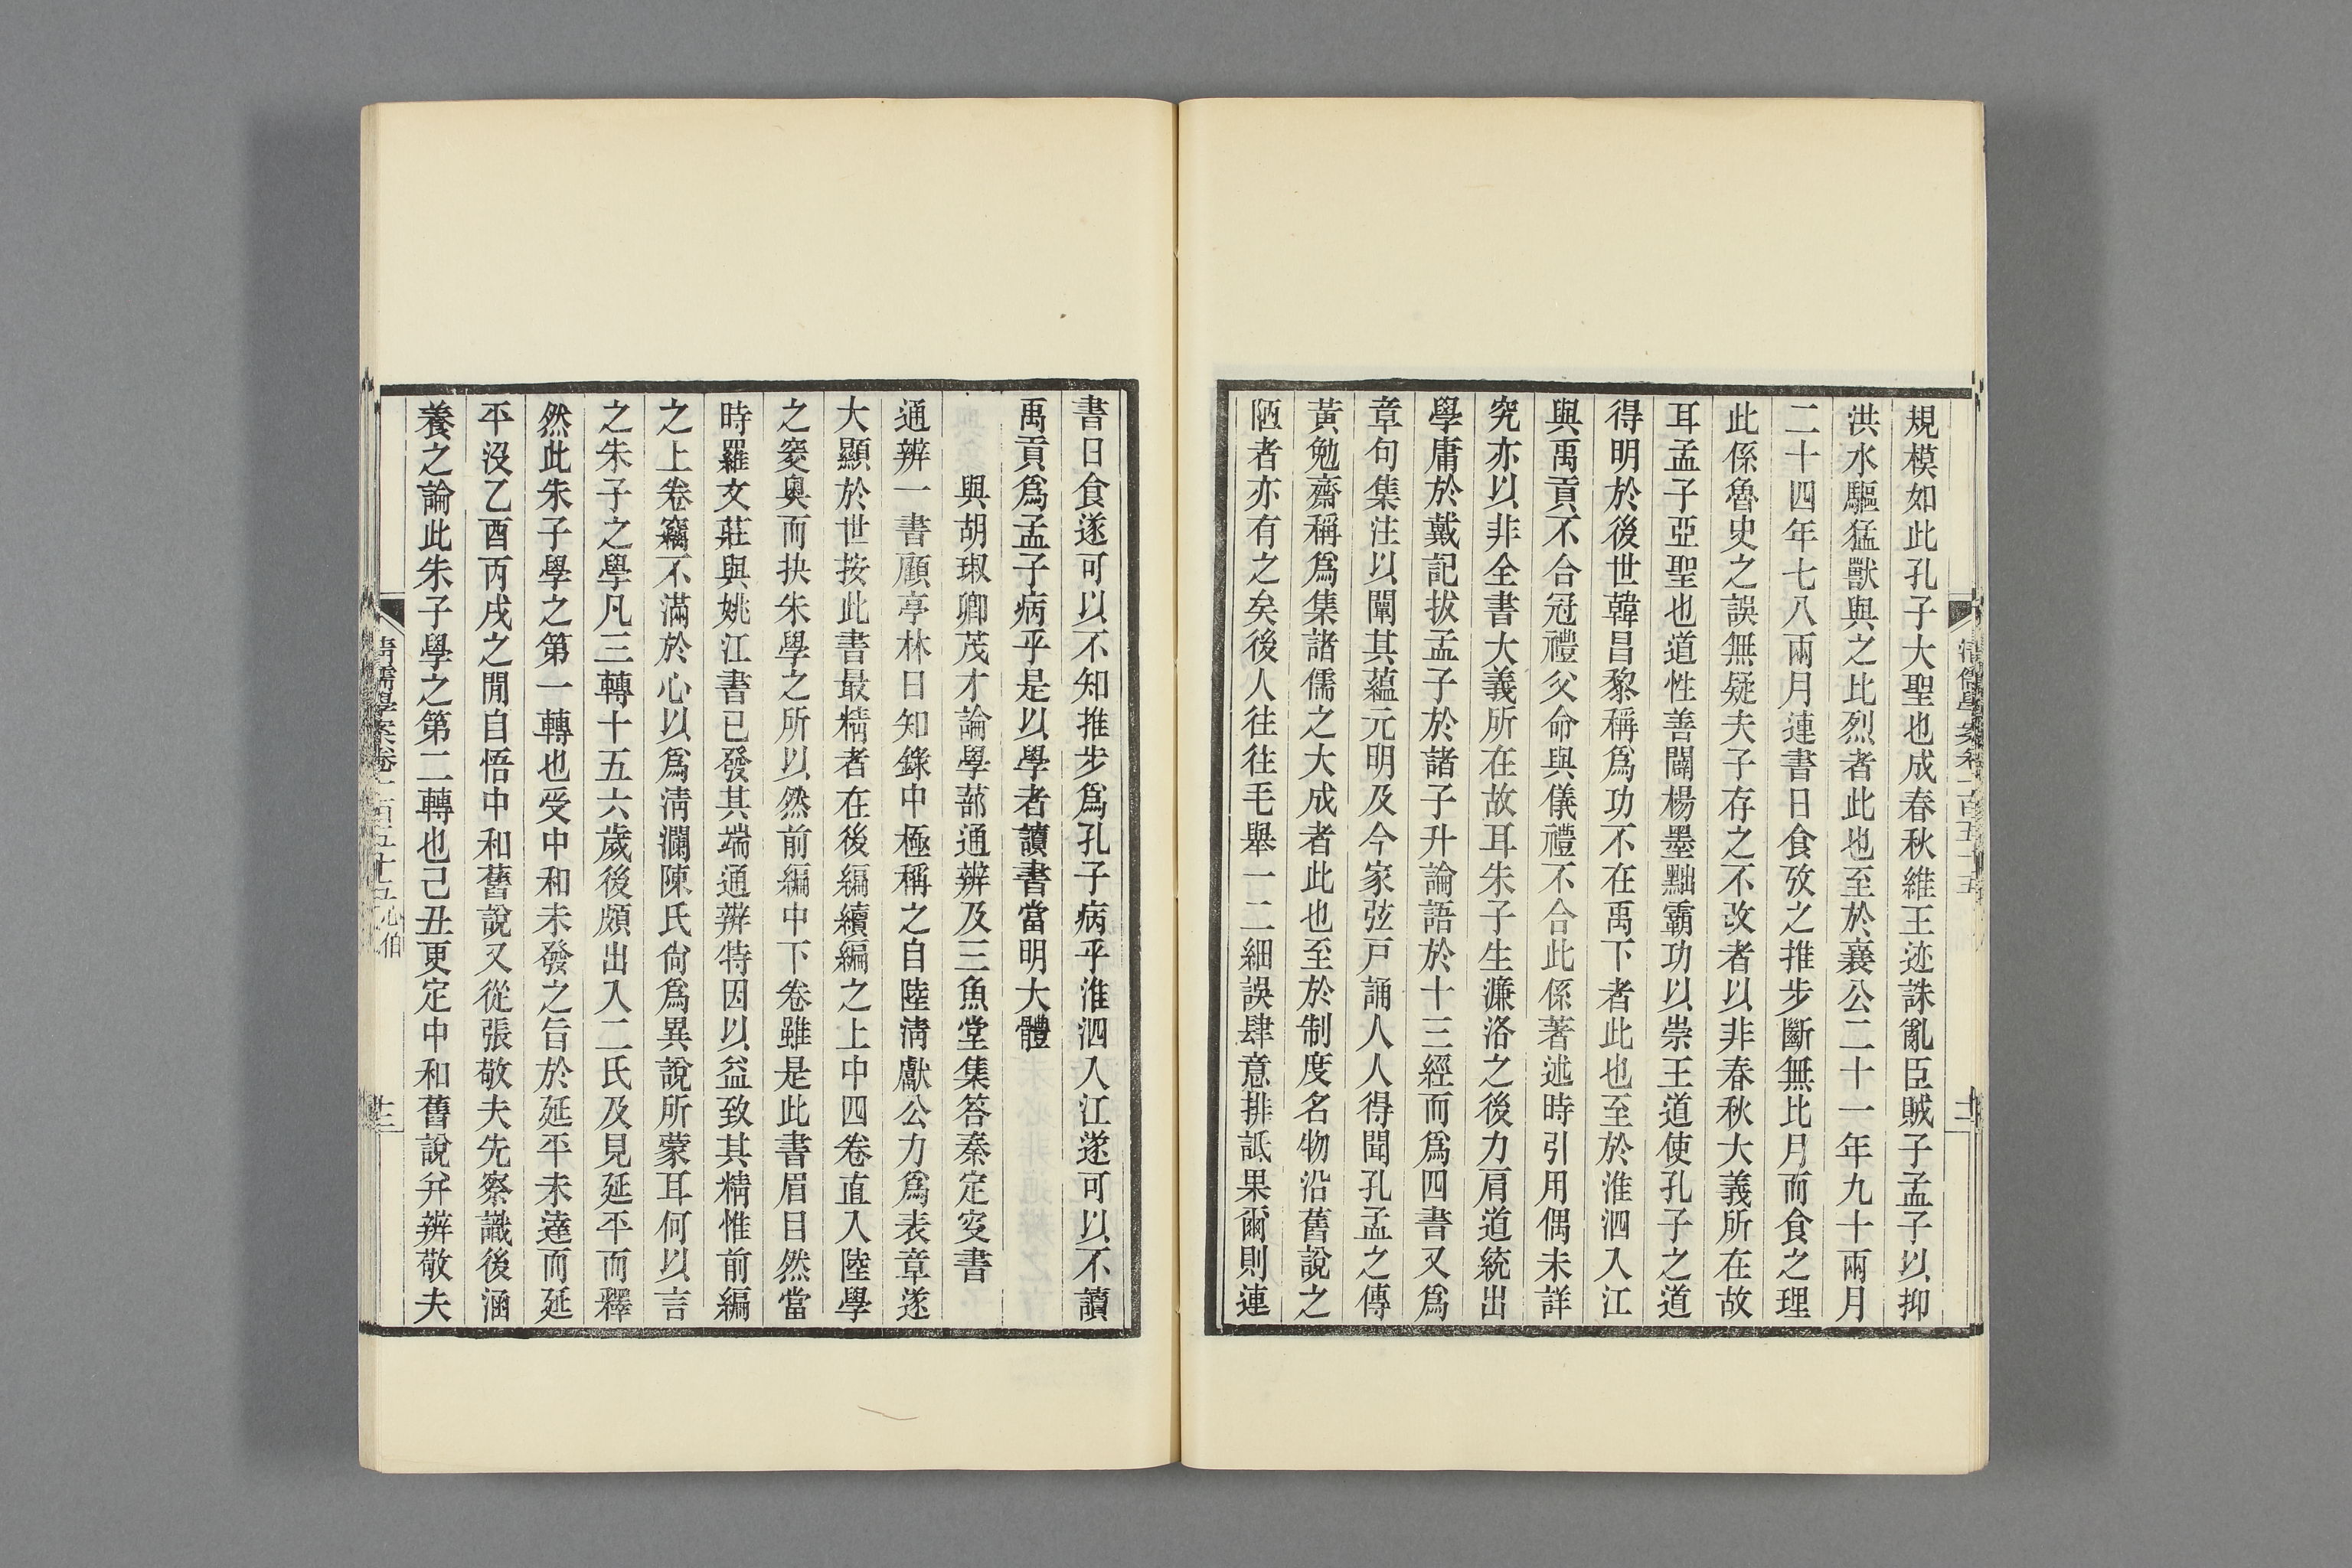 規模如此孔子大聖也成春秋維王迹誅亂臣賊子孟子以抑
洪水驅猛獸與之比烈者此也至於襄公二十一年九十兩月
二十四年七八兩月連書日食攷之推步斷無比月而食之理
此係魯史之誤無疑夫子存之不改者以非春秋大義所在故
耳孟子亞聖也道性善闢楊墨黜霸功以崇王道使孔子之道
得明於後世韓昌黎稱爲功不在禹下者此也至於淮泗入江
與禹貢不合冠禮父命與儀禮不合此係著述時引用偶未詳
究亦以非全書大義所在故耳朱子生濂洛之後力肩道統出
學庸於戴記拔孟子於諸子升論語於十三經而爲四書又爲
章句集注以闡其蘊元明及今家弦戸誦人人得聞孔孟之傳
黃勉齋稱爲集諸儒之大成者此也至於制度名物沿舊說之
陋者亦有之矣後人往往毛舉一二細誤肆意排詆果爾則連
清儒學案卷一百五十五
十二
書日食遂可以不知推步爲孔子病乎淮泗入江遂可以不讀
禹貢爲孟子病乎是以學者讀書當明大體
與胡琡卿茂才論學蔀通辨及三魚堂集答秦定叜書
通辨一書顧亭林日知錄中極稱之自陸淸獻公力爲表章遂
大顯於世按此書最精者在後編續編之上中四卷直入陸學
之窔奧而抉朱學之所以然前編中下卷雖是此書眉目然當
時羅文莊與姚江書已發其端通辨特因以益致其精惟前編
之上卷竊不滿於心以爲淸瀾陳氏尙爲異說所蒙耳何以言
之朱子之學凡三轉十五六歲後頗出入二氏及見延平而釋
然此朱子學之第一轉也受中和未發之旨於延平未達而延
平沒乙酉丙戌之閒自悟中和舊說又從張敬夫先察識後涵
養之論此朱子學之第二轉也己丑更定中和舊說幷辨敬夫
清儒學案卷一百五十五 心伯
十三